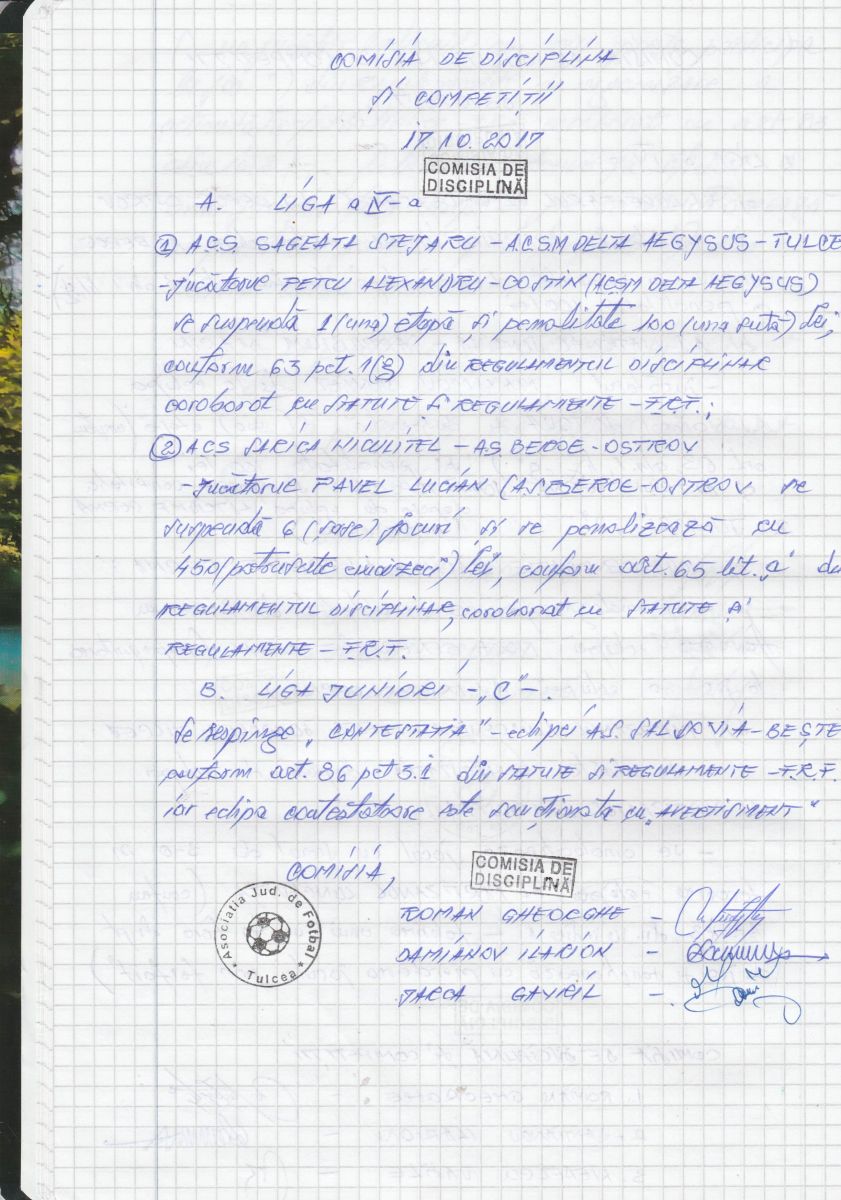 COMISIA DE DISCIPLINA
ȘI COMPETIȚII
17.10.2017
COMISIA DE
DISCIPLINĂ
A. LIGA a IV-a
① A.C.S. SAGEATA STEJARU - A.C.S.M DELTA AEGYSUS - TULCE
- Jucătorul PETCU ALEXANDRU-COSTIN (ACSM DELTA AEGYSUS)
se suspendă 1 (una) etapă și penalitate 100 (una sută) lei,
conform 63 pct. 1(g) din REGULAMENTUL DISCIPLINAR
coroborat cu STATUTE SI REGULAMENTE - F.R.F.;
② ACS SARICA NICULITEL - A.S. BEROE-OSTROV
- Jucătorul PAVEL LUCIAN (A.S BEROE-OSTROV se
suspendă 6 (șase) jocuri și se penalizează cu
450 (patrusute cincizeci) lei, conform art. 65 lit. „a" du
REGULAMENTUL DISCIPLINAR, coroborat cu STATUTE SI
REGULAMENTE - F.R.F.
B. LIGA JUNIORI - „C" -.
Se respinge „CONTESTATIA" - echipei A.S. SALSOVIA - BEȘTE
conform art. 86 pct 3.1 din STATUTE SI REGULAMENTE - F.R.F.
iar echipa contestatoare este sancționată cu „AVERTISMENT"
COMISIA,
COMISIA DE
DISCIPLINĂ
Asociatia Jud. de Fotbal
* Tulcea *
ROMAN GHEORGHE -
DAMIANOV ILARION -
JARCA GAVRIL -